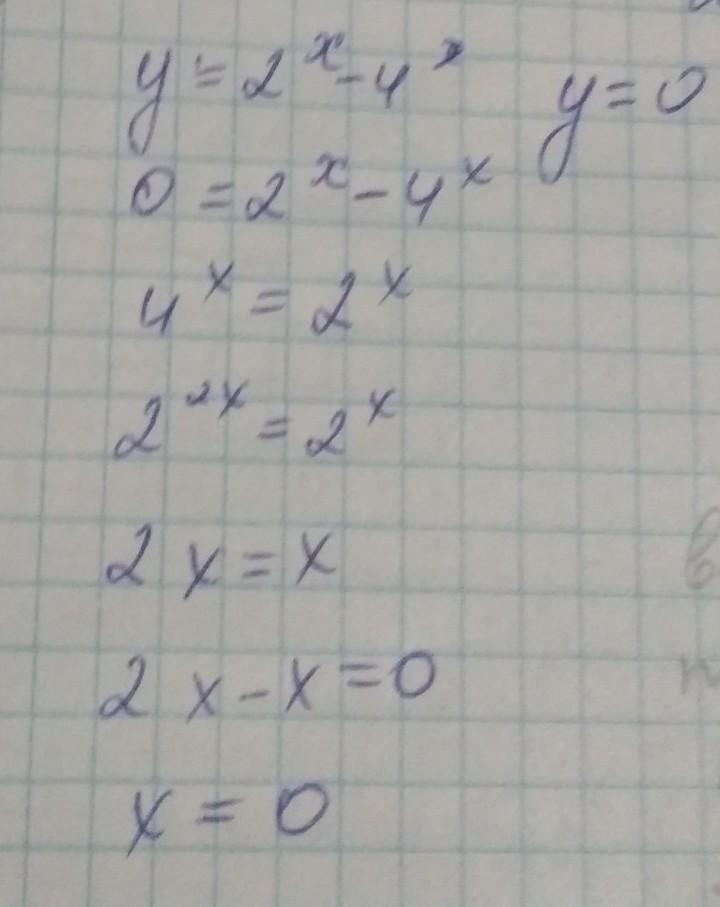 y = 2^x - 4^x y = 0
0 = 2^x - 4^x
4^x = 2^x
2^2x = 2^x
2x = x
2x - x = 0
x = 0